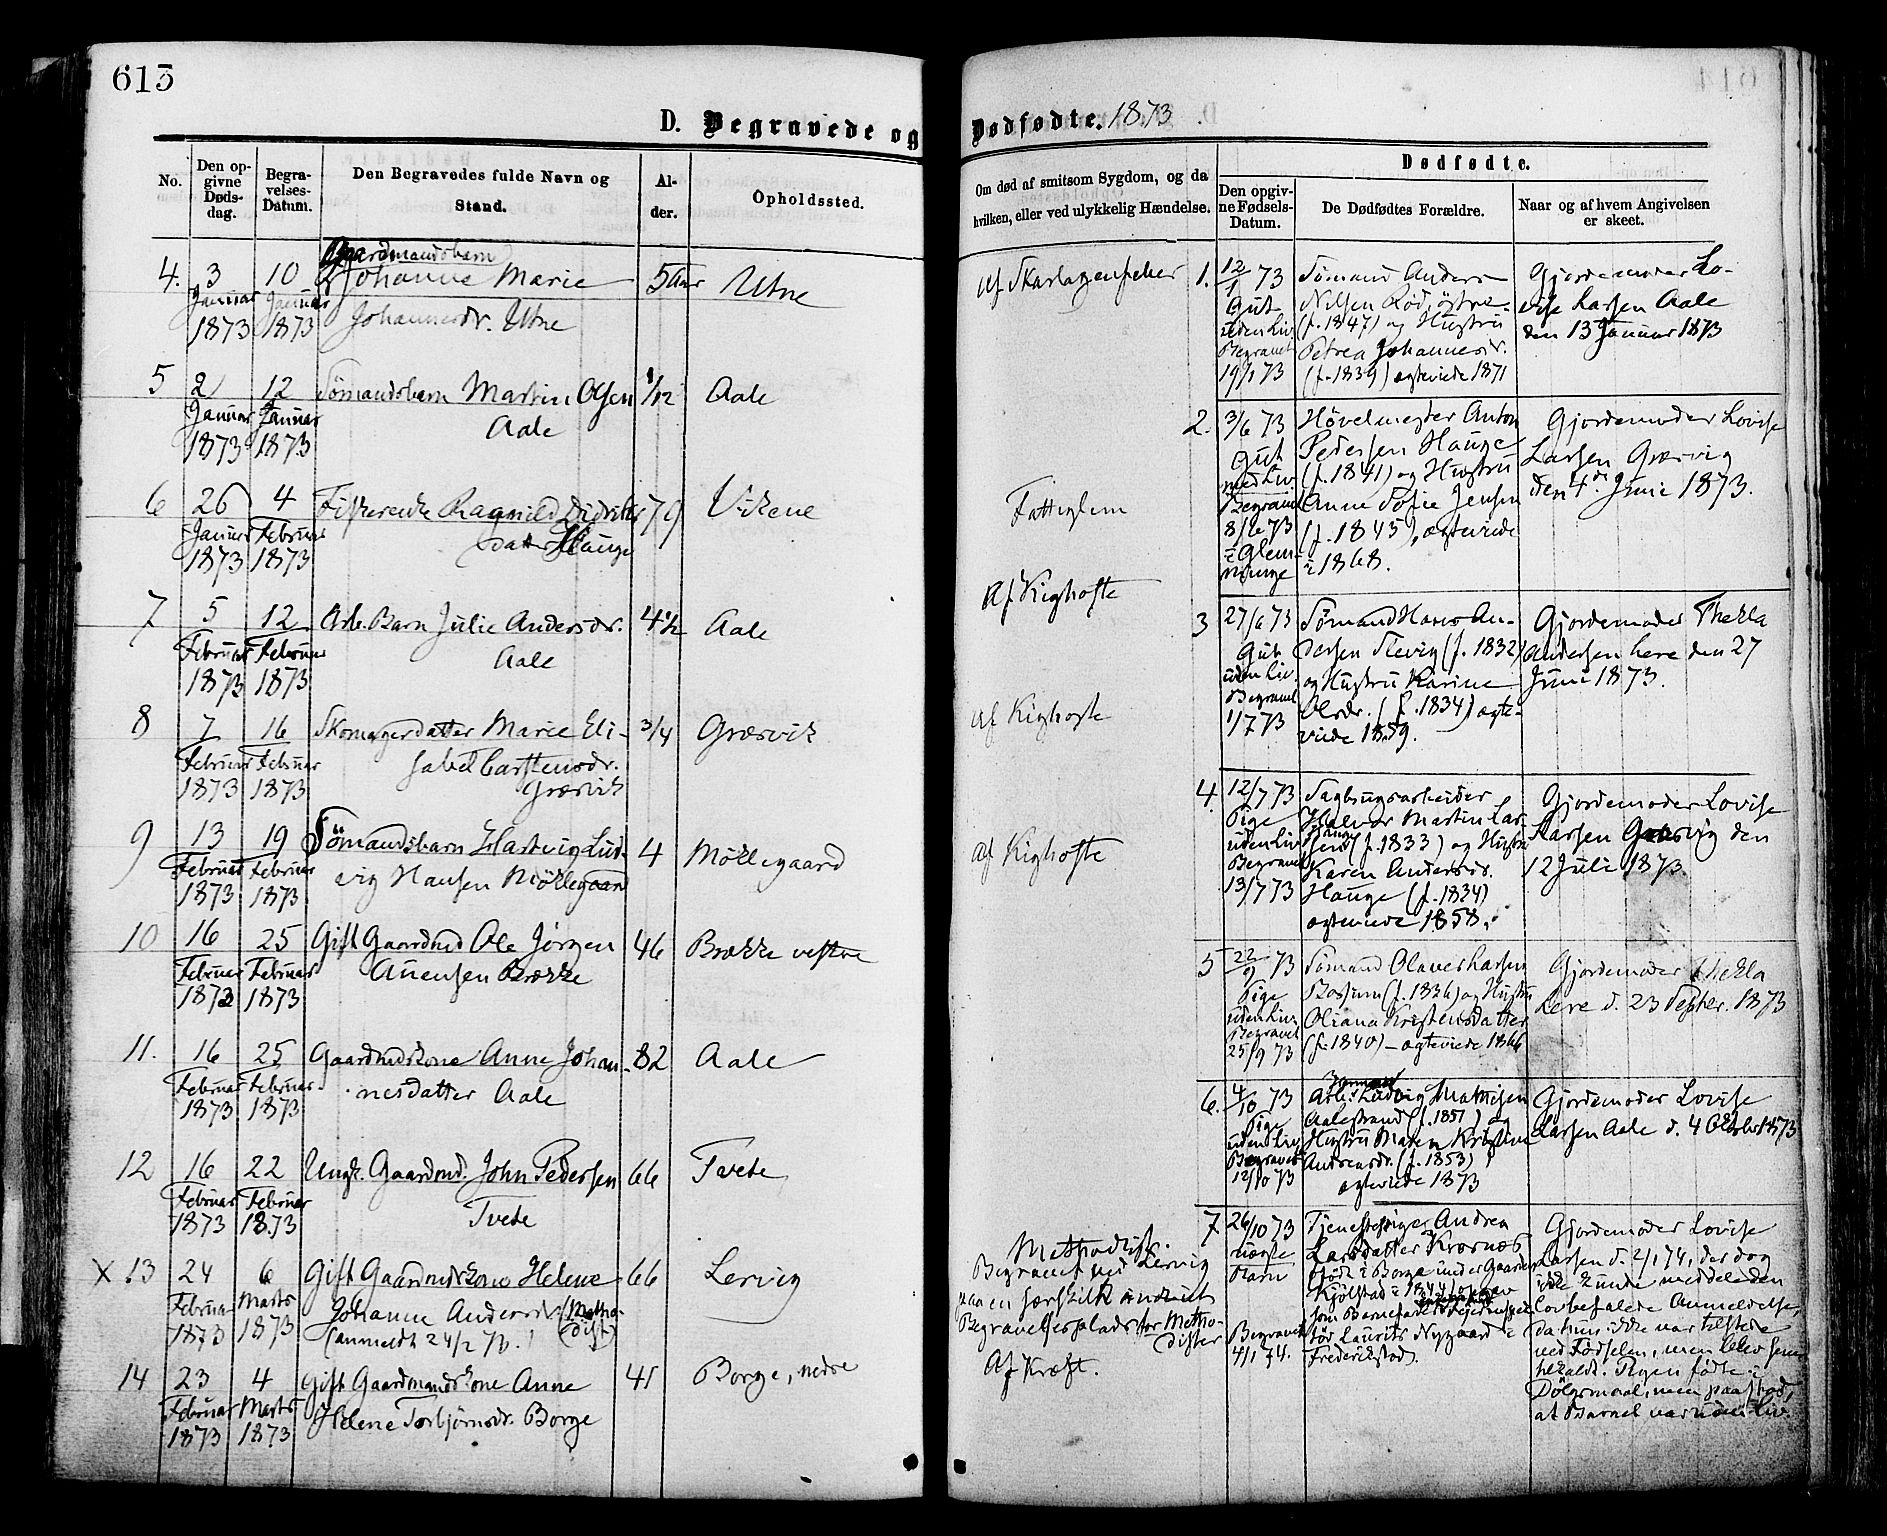 615
D. Begravede og
Dødfødte. 1873
No.
Den op-
givne
Døds-
dag.
Begra-
velses-
Datum.
Den Begravedes fulde Navn og
Stand.
Al-
der.
Opholdssted.
4. 3 Januar 1873 10 Januar 1873 Gaardmandsbarn
Johanne Marie 5 Aar Utne
Johannesdr. Utne
5 2 Januar 1873 12 Januar 1873 Sømandsbarn Martin Olsen 1/12 Aale
Aale
6 26 Januar 1873 4 Februar 1873 Fiskerenke Ragnild Didriks 79 Vikene
datter Hauge
7 5 Februar 1873 12 Februar 1873 Arb. Barn Julie Andersdr. 4 1/2 Aale
Aale
8 7 Februar 1873 16 Februar 1873 Skomagerdatter Marie Eli- 3/4 Græsvik
sabet Carstensdr.
Græsvik
9 13 Februar 1873 19 Februar 1873 Sømandsbarn Hartvig Lud- 4 Møklegaard
vig Hansen Møklegaard
10 16 Februar 1873 25 Februar 1873 Gift Gaardmd Ole Jørgen 46 Brække vestre
Auensen Brække
11. 16 Februar 1873 25 Februar 1873 Gaardmdskone Anne Johan- 82 Aale
nesdatter Aale
12 16 Februar 1873 22 Februar 1873 Ungk. Gaardmd. John Pedersen 66 Tvete
Tvete
x 13 24 Februar 1873 6 Marts 1873 Gift Gaardmdskone Helene 66 Lervig
Johanne Andersdr (Metho-
dist)
(anmeldt 24/2 73.)
14 23 Februar 1873 4 Marts 1873 Gift Gaardmandskone Anne 41 Borge, nedre
Helene Torbjørnsdr. Borge
Om død af smitsom Sygdom, og da
hvilken, eller ved ulykkelig Hændelse.
Af Skarlagensfeber
Fattiglem
Af Kighoste
Af Kighoste
Af Kighoste
Methodist.
Begravet ved Lervig
paa en særskilt indviet
Begravelsesplads for Metho-
dister
Af Kræft.
Dødfødte.
Den opgiv-
ne Fødsels-
Datum.
De Dødfødtes Forældre.
Naar og af hvem Angivelsen
er skeet.
1. 12/1 73
Gut
uden Liv
Begravet
19/1 73
Sømand Anders
Nilsen Rød, østre
(f. 1847) og Hustru
Petrea Johannesdr.
(f. 1839) ægteviede 1871
Gjordemoder Lo-
vise Larsen Aale
den 13 Januar 1873
2. 3/6 73
Gut
med Liv
Begravet
8/6 73
i Glem-
minge
Høvelmester Anton
Pedersen Hauge
(f. 1841) og Hustru
Anne Sofie Jensen
(f. 1845), ægteviede
i 1868.
Gjordemoder Lovise
Larsen Græsvig
den 4de Juni 1873.
3 27/6 73
Gut
uden Liv.
Begravet
1/7 73
Sømand Hans An-
dersen Slevig (f. 1832)
og Hustru Karine
Olsdr. (f. 1834) ægte-
viede 1859.
Gjordemoder Thekla
Andersen Lere den 27
Juni 1873.
4. 12/7 73
Pige
uden Liv
Begravet
13/7 73
Sagbrugsarbeider
Halvor Martin Lar-
sen Hauge (f. 1833) og Hustru
Karen Andersdr.
Hauge (f. 1834)
ægteviede 1858.
Gjordemoder Lovise
Larsen Græsvig den
12 Juli 1873.
5 22/9 73
Pige
uden Liv
Begravet
25/9 73
Sømand Olaves Larsen
(f. 1836) og Hustru
Oliana Kristensdatter
(f. 1840) – ægteviede 1866
Gjordemoder Thekla
Lere d. 23 Septber. 1873
6. 4/10 73
Pige
uden Liv
Begravet
12/10 73
Arb. Ludvig Mathisen
Aalestrand (f. 1851) og
Hustru Maren Kristine
Andreasdr. (f. 1853)
ægteviede 1873
Gjordemoder Lovise
Larsen Aale d. 4 Oktober 1873
7 26/10 73
uægte
Barn
Begravet
4/1 74.
Tjenestepige Andrea
Larsdatter Kræmnæs
født i Borge under Gaarden
Kjølstad i 1844) opgav
som Barnefader
Laurits Nygaard i
Frederikstad.
Gjordemoder Lovise
Larsen d. 2/1 74, der dog
ikke kunde meddele den
lovbefalede Anmeldelse,
da hun ikke var tilstede
ved Fødselen, men blev senere
tilkaldt. Pigen fødte i
Dølgsmaal, men paastod,
at Barnet var uden Liv.